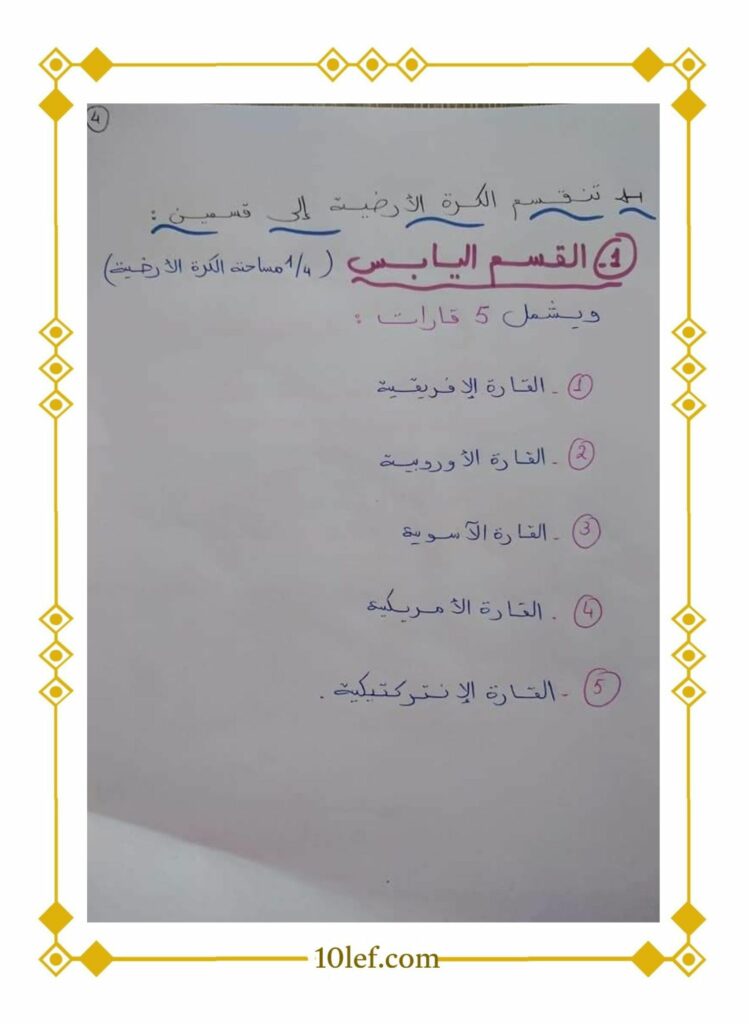 4
* تنقسم الكرة الأرضية إلى قسمين :
1. القسم اليابس ( 1/4 مساحة الكرة الأرضية)
ويشمل 5 قارات :
1 - القارة الإفريقية
2 - القارة الأوروبية
3 - القارة الآسوية
4 - القارة الأمريكية
5 - القارة الإنتركتيكية .
10lef.com